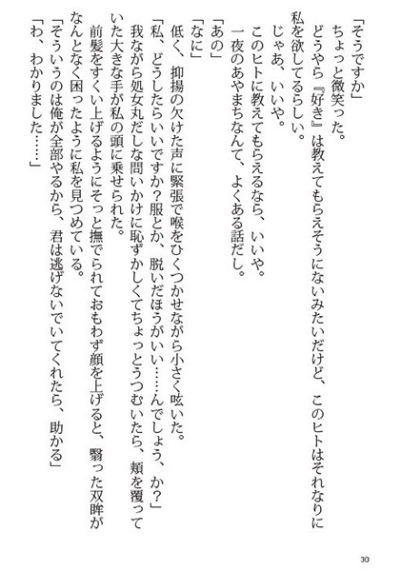 「そうですか」
ちょっと微笑った。
どうやら『好き』は教えてもらえそうにないみたいだけど、このヒトはそれなりに
私を欲してるらしい。
じゃあ、いいや。
このヒトに教えてもらえるなら、いいや。
一夜のあやまちなんて、よくある話だし。
「あの」
「なに」
低く、抑揚の欠けた声に緊張で喉をひくつかせながら小さく呟いた。
「私、どうしたらいいですか？服とか、脱いだほうがいい……んでしょう、か？」
我ながら処女丸だしな問いかけに恥ずかしくてちょっとうつむいたら、頬を覆って
いた大きな手が私の頭に乗せられた。
前髪をすくい上げるようにそっと撫でられておもわず顔を上げると、翳った双眸が
なんとなく困ったように私を見つめている。
「そういうのは俺が全部やるから、君は逃げないでいてくれたら、助かる」
「わ、わかりました……」
30